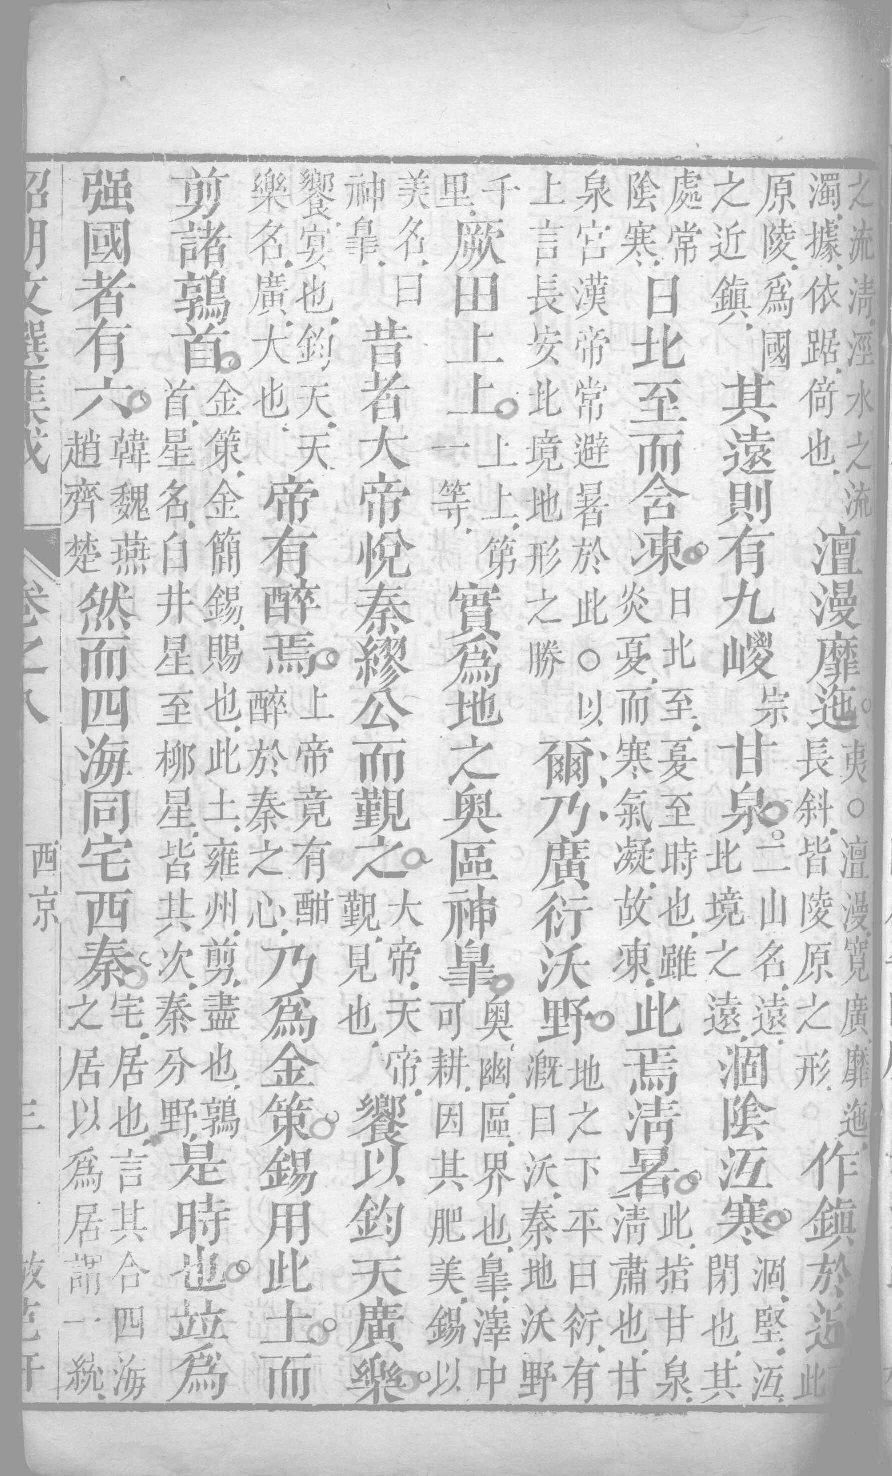 之流清涇水之流濁據依踞倚也澶漫靡迤。夷○澶漫寬廣靡迤長斜皆陵原之形作鎮於近此
原陵爲國之近鎮其遠則有九嵕宗甘泉。二山名遠此境之遠涸陰沍寒。涸堅沍閉也其
處常陰寒日北至而含凍。日北至夏至時也雖炎夏而寒氣凝故凍此焉清暑。此指甘泉清肅也甘
泉宮漢帝常避暑於此○以上言長安北境地形之勝爾乃廣衍沃野。地之下平曰衍有溉曰沃秦地沃野
千里厥田上上。上上第一等實爲地之奧區神皐。奧幽區界也皐澤中可耕因其肥美錫以
美名曰神皐昔者大帝悅秦繆公而覲之。大帝天帝覲見也饗以鈞天廣樂。
饗宴也鈞天天樂名廣大也帝有醉焉。上帝竟有酣醉於秦之心乃爲金策。錫用此土。而
剪諸鶉首。金策金簡錫賜也此土雍州剪盡也鶉首星名自井星至柳星皆其次秦分野是時也。竝爲
强國者有六。韓魏燕趙齊楚然而四海同宅西秦。宅居也言其合四海之居以爲居謂一統
昭明文選集成 卷之八 西京 三